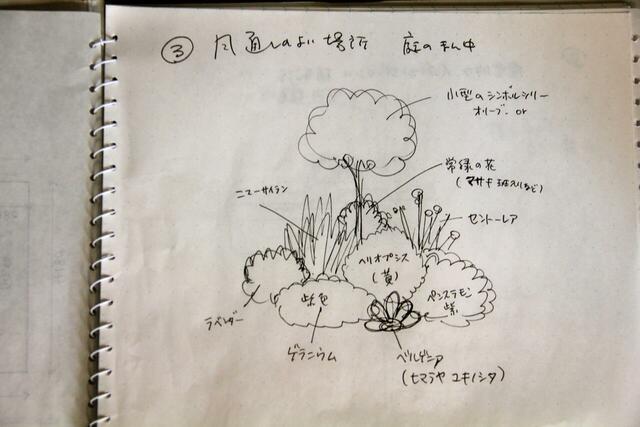 ③ 風通しのよい場所 庭のまん中
小型のシンボルツリー
オリーブ or
常緑の花
(マサキ 斑入りなど)
ニューサイラン
セントーレア
ヘリオプシス
(黄)
紫色
ペンステモン
紫
ラベンダー
ゲラニウム
ベルゲニア
(ヒマラヤユキノシタ)